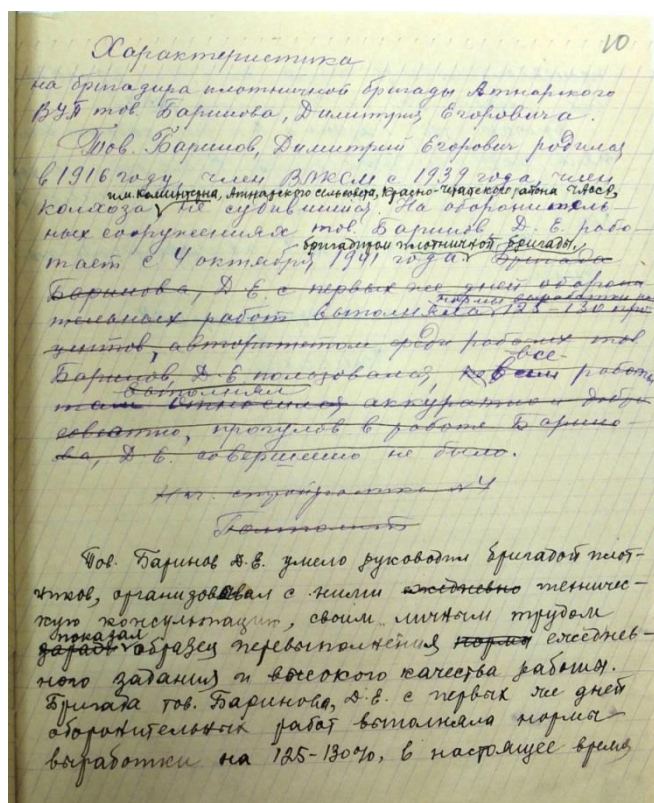 10
Характеристика
на бригадира плотничной бригады Атнарского
ВУП тов. Баринова, Димитрия Егоровича.
Тов. Баринов, Димитрий Егорович родился
в 1916 году, член ВЛКСМ с 1939 года, член
им. Коминтерна, Атнарского сельсовета, Красно-Четайского района ЧАССР,
колхоза не судившийся. На оборонитель-
ных сооружениях тов. Баринов Д. Е. рабо-
бригадиром плотничной бригады.
тает с 4 октября 1941 года. Бригада
Баринова, Д. Е. с первых же дней оборони
нормы выработки на
тельных работ выполняла 125-130 про-
центов, авторитетом среди рабочих тов
все-
Баринов, Д. Е. пользовался, ко всем работы
выполнял
относился аккуратно и добро
совестно, прогулов в работе Барино-
ва, Д. Е. совершенно не было.
Нач. стройучастка №4
Политрук
Тов. Баринов Д. Е. умело руководил бригадой плот-
ников, организовывал с ними ежедневно техничес-
кую консультацию, своим личным трудом
показал
образец перевыполнения норма ежеднев-
ного задания и высокого качества работы.
Бригада тов. Баринова, Д. Е. с первых же дней
оборонительных работ выполняла нормы
выработки на 125-130%, в настоящее время